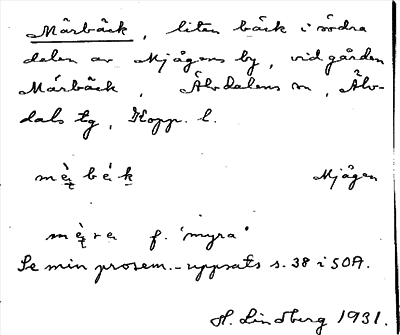 Märbäck, liten bäck i södra
delen av Mjågens by, vid gården
Märbäck, Älvdalens sn, Älv-
dals tg, Kopp. l.
Mjågen
f. "myra"
Se min prosem.-uppsats s. 38 i SOA.
H. Lindberg 1931.